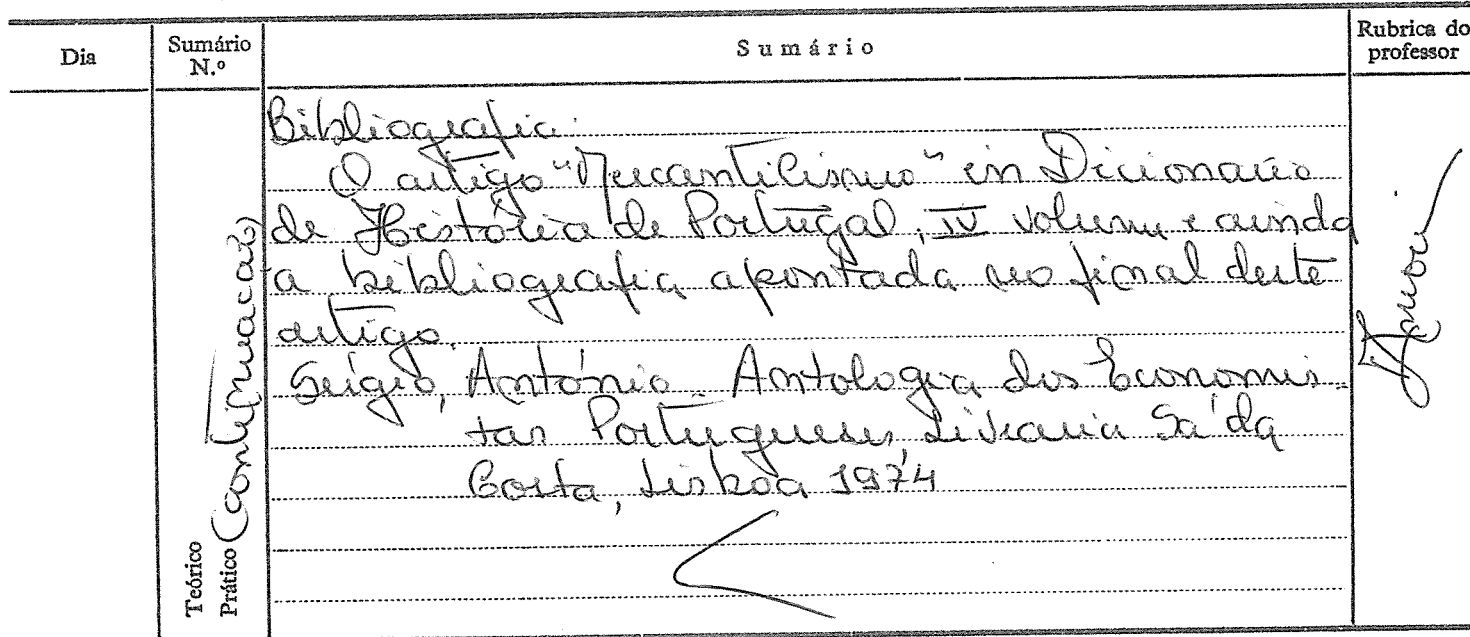 Dia
Sumário N.º
Sumário
Rubrica do professor
Teórico
Prático
(continuação)
Bibliografia:
O artigo "Mercantilismo" in Dicionário
de História de Portugal, IV volume e ainda
a bibliografia apontada no final deste
artigo.
Sérgio, António Antologia dos Economis-
tas Portugueses, Livraria Sá da
Costa, Lisboa 1974